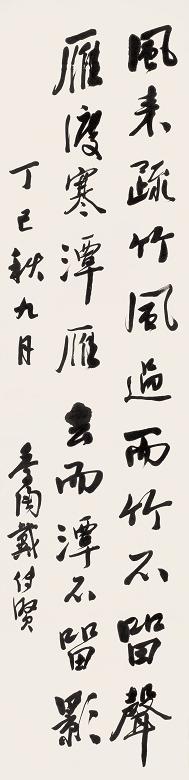 風来疏竹風過而竹不留聲
雁度寒潭雁去而潭不留影
丁巳秋九月
吳陶戴傳賢